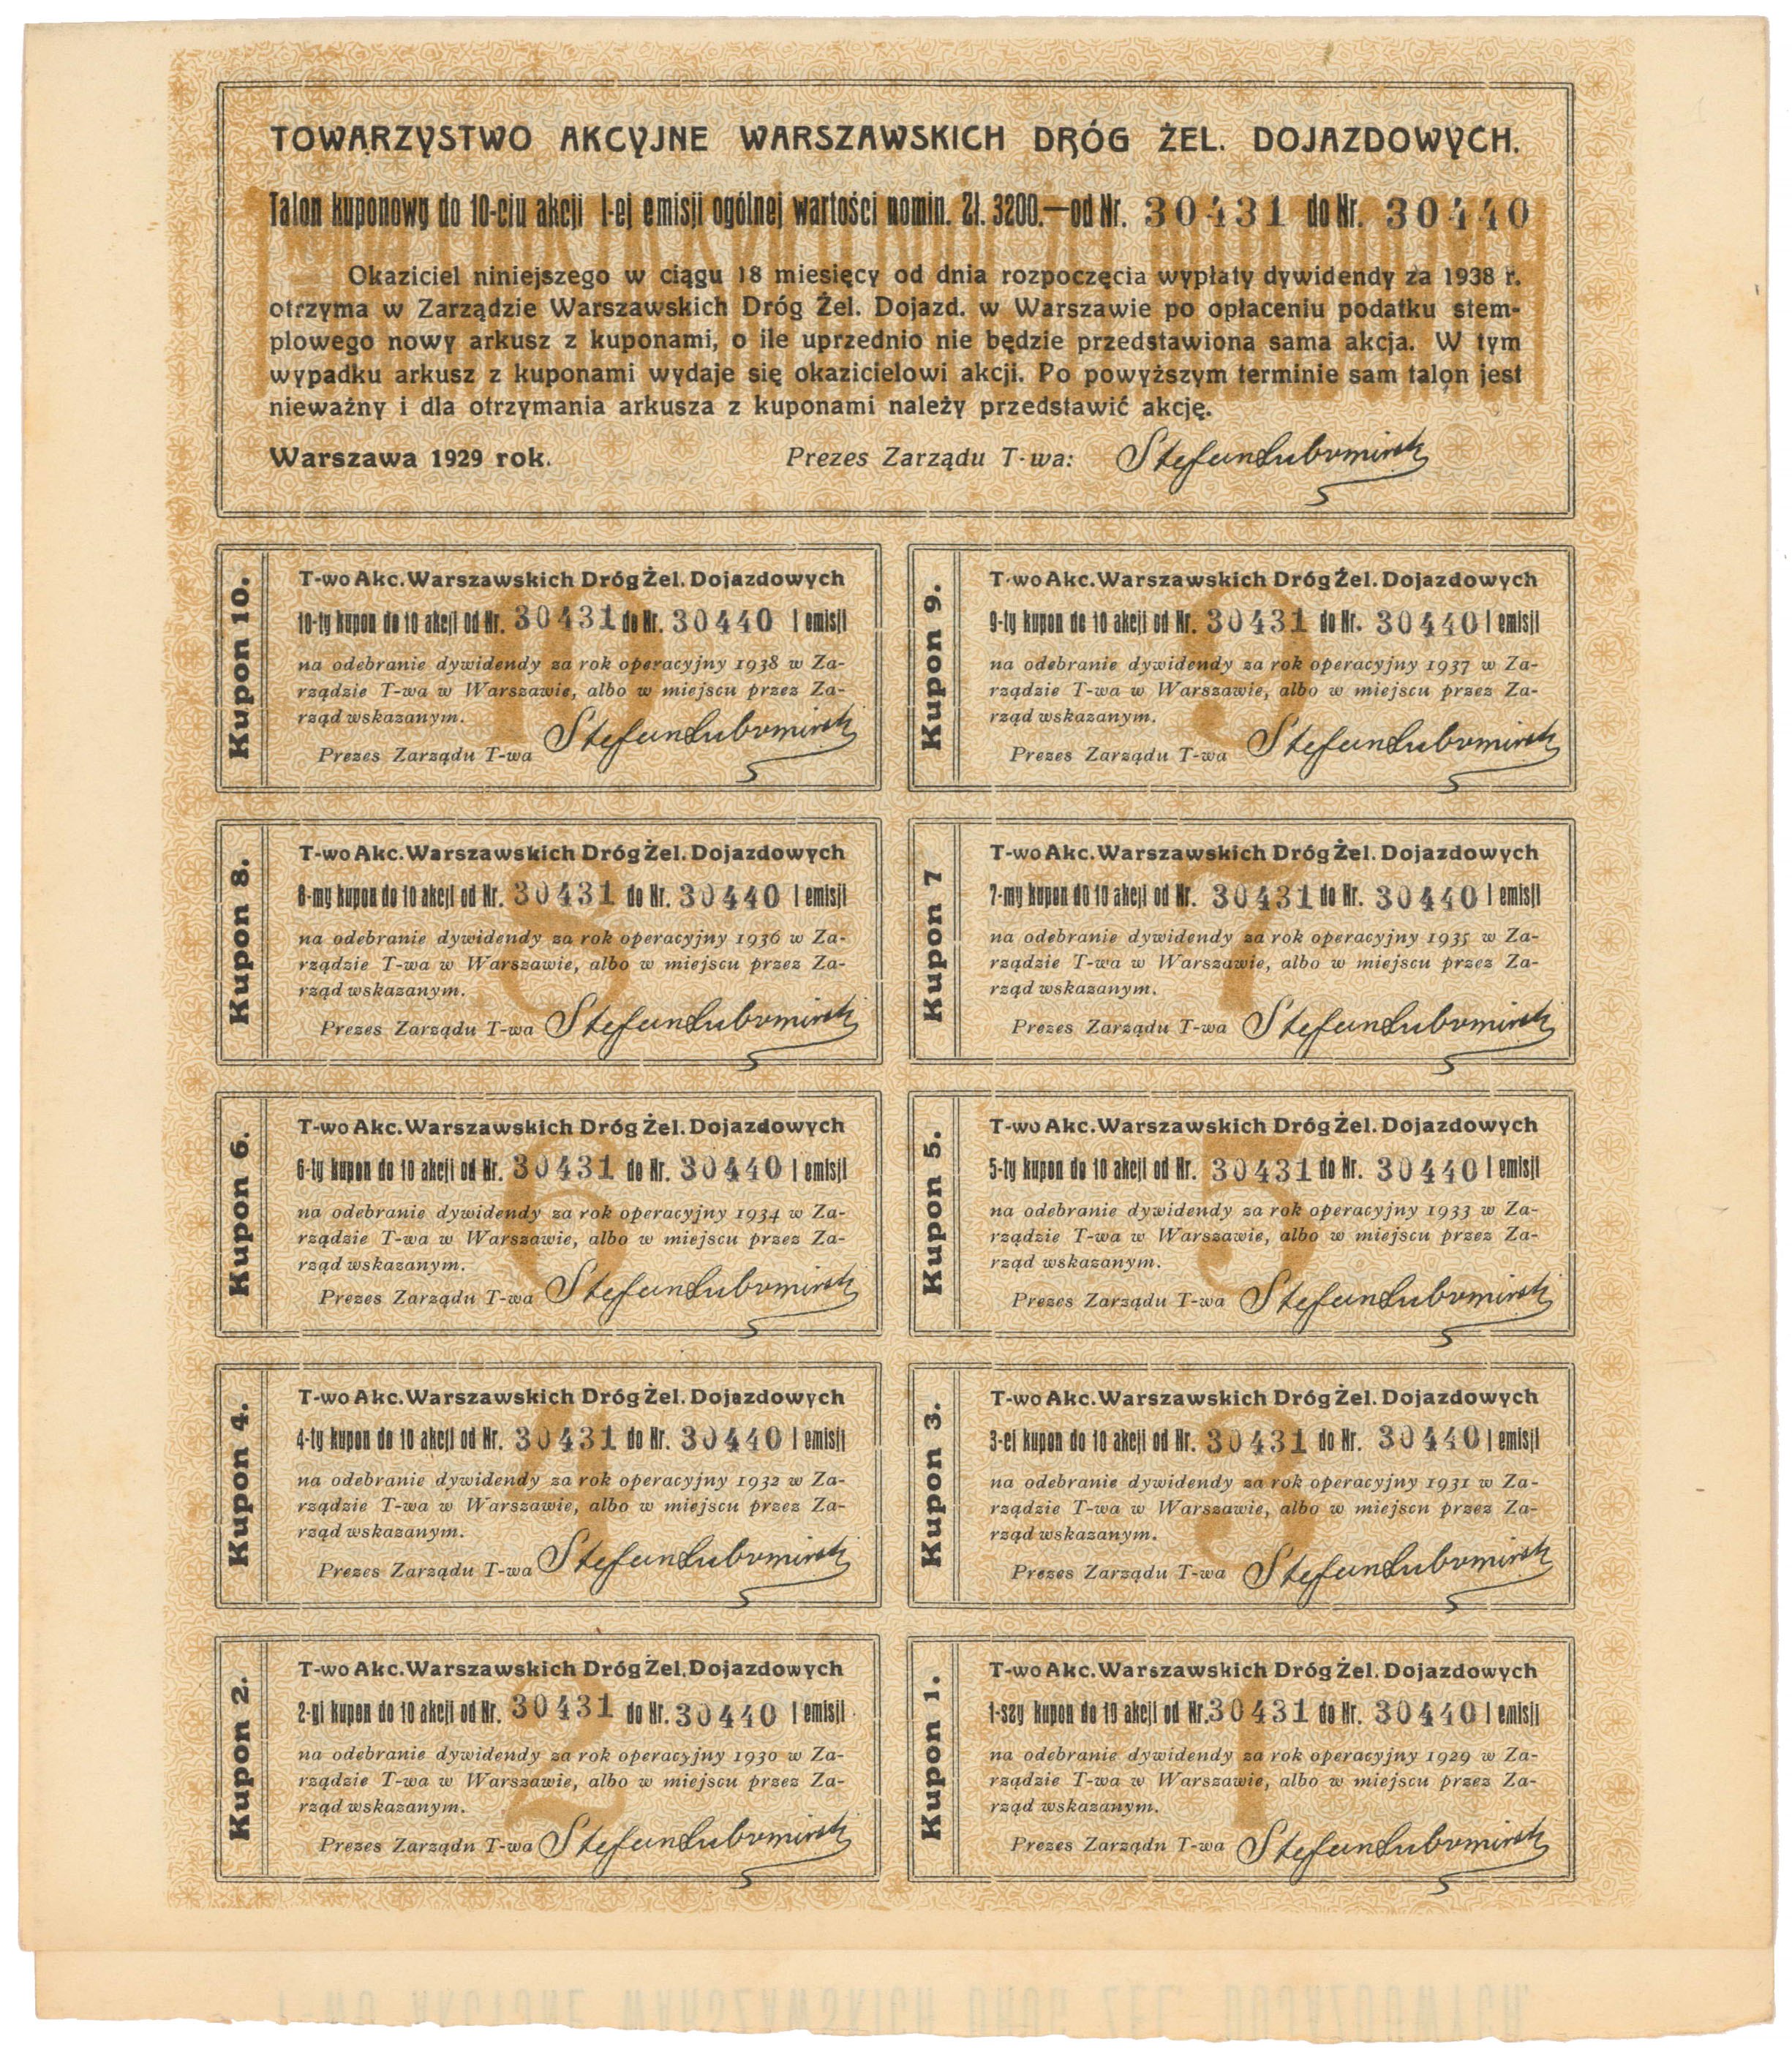 TOWARZYSTWO AKCYJNE WARSZAWSKICH DRÓG ŻEL. DOJAZDOWYCH.
Talon kuponowy do 10-ciu akcji I-ej emisji ogólnej wartości nomin. Zł. 3200.—od Nr. 30431 do Nr. 30440
Okaziciel niniejszego w ciągu 18 miesięcy od dnia rozpoczęcia wypłaty dywidendy za 1938 r.
otrzyma w Zarządzie Warszawskich Dróg Żel. Dojazd. w Warszawie po opłaceniu podatku stem-
plowego nowy arkusz z kuponami, o ile uprzednio nie będzie przedstawiona sama akcja. W tym
wypadku arkusz z kuponami wydaje się okazicielowi akcji. Po powyższym terminie sam talon jest
nieważny i dla otrzymania arkusza z kuponami należy przedstawić akcję.
Warszawa 1929 rok. Prezes Zarządu T-wa: Stefan Lubomirski
Kupon 10.
10
T-wo Akc. Warszawskich Dróg Żel. Dojazdowych
10-ty kupon do 10 akcji od Nr. 30431 do Nr. 30440 I emisji
na odebranie dywidendy za rok operacyjny 1938 w Za-
rządzie T-wa w Warszawie, albo w miejscu przez Za-
rząd wskazanym.
Prezes Zarządu T-wa Stefan Lubomirski
Kupon 9.
9
T-wo Akc. Warszawskich Dróg Żel. Dojazdowych
9-ty kupon do 10 akcji od Nr. 30431 do Nr. 30440 I emisji
na odebranie dywidendy za rok operacyjny 1937 w Za-
rządzie T-wa w Warszawie, albo w miejscu przez Za-
rząd wskazanym.
Prezes Zarządu T-wa Stefan Lubomirski
Kupon 8.
8
T-wo Akc. Warszawskich Dróg Żel. Dojazdowych
8-my kupon do 10 akcji od Nr. 30431 do Nr. 30440 I emisji
na odebranie dywidendy za rok operacyjny 1936 w Za-
rządzie T-wa w Warszawie, albo w miejscu przez Za-
rząd wskazanym.
Prezes Zarządu T-wa Stefan Lubomirski
Kupon 7
7
T-wo Akc. Warszawskich Dróg Żel. Dojazdowych
7-my kupon do 10 akcji od Nr. 30431 do Nr. 30440 I emisji
na odebranie dywidendy za rok operacyjny 1935 w Za-
rządzie T-wa w Warszawie, albo w miejscu przez Za-
rząd wskazanym.
Prezes Zarządu T-wa Stefan Lubomirski
Kupon 6.
6
T-wo Akc. Warszawskich Dróg Żel. Dojazdowych
6-ty kupon do 10 akcji od Nr. 30431 do Nr. 30440 I emisji
na odebranie dywidendy za rok operacyjny 1934 w Za-
rządzie T-wa w Warszawie, albo w miejscu przez Za-
rząd wskazanym.
Prezes Zarządu T-wa Stefan Lubomirski
Kupon 5.
5
T-wo Akc. Warszawskich Dróg Żel. Dojazdowych
5-ty kupon do 10 akcji od Nr. 30431 do Nr. 30440 I emisji
na odebranie dywidendy za rok operacyjny 1933 w Za-
rządzie T-wa w Warszawie, albo w miejscu przez Za-
rząd wskazanym.
Prezes Zarządu T-wa Stefan Lubomirski
Kupon 4.
4
T-wo Akc. Warszawskich Dróg Żel. Dojazdowych
4-ty kupon do 10 akcji od Nr. 30431 do Nr. 30440 I emisji
na odebranie dywidendy za rok operacyjny 1932 w Za-
rządzie T-wa w Warszawie, albo w miejscu przez Za-
rząd wskazanym.
Prezes Zarządu T-wa Stefan Lubomirski
Kupon 3.
3
T-wo Akc. Warszawskich Dróg Żel. Dojazdowych
3-ei kupon do 10 akcji od Nr. 30431 do Nr. 30440 I emisji
na odebranie dywidendy za rok operacyjny 1931 w Za-
rządzie T-wa w Warszawie, albo w miejscu przez Za-
rząd wskazanym.
Prezes Zarządu T-wa Stefan Lubomirski
Kupon 2.
2
T-wo Akc. Warszawskich Dróg Żel. Dojazdowych
2-gi kupon do 10 akcji od Nr. 30431 do Nr. 30440 I emisji
na odebranie dywidendy za rok operacyjny 1930 w Za-
rządzie T-wa w Warszawie, albo w miejscu przez Za-
rząd wskazanym.
Prezes Zarządu T-wa Stefan Lubomirski
Kupon 1.
1
T-wo Akc. Warszawskich Dróg Żel. Dojazdowych
1-szy kupon do 10 akcji od Nr. 30431 do Nr. 30440 I emisji
na odebranie dywidendy za rok operacyjny 1929 w Za-
rządzie T-wa w Warszawie, albo w miejscu przez Za-
rząd wskazanym.
Prezes Zarządu T-wa Stefan Lubomirski